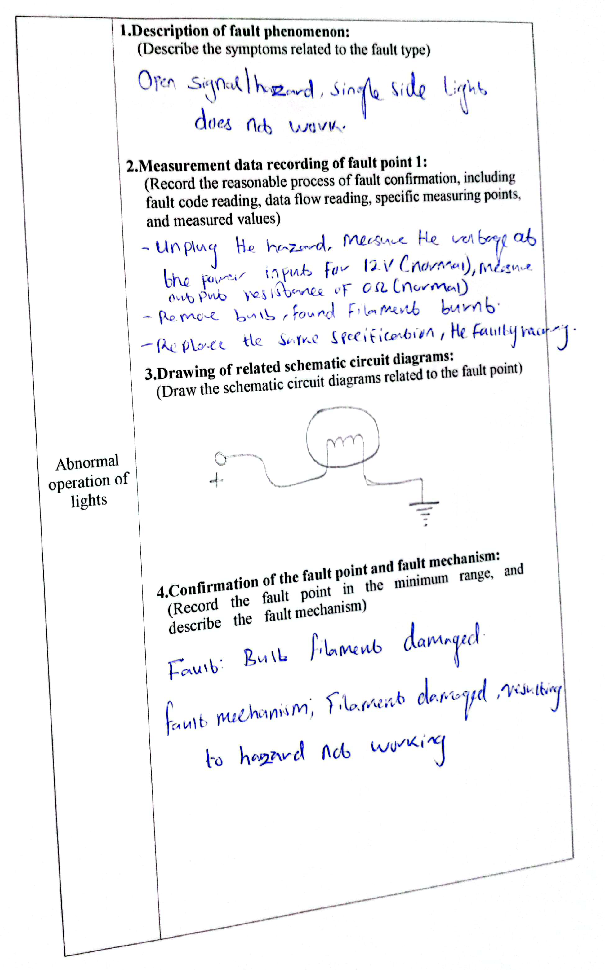 1.Description of fault phenomenon:
(Describe the symptoms related to the fault type)
Open signal/hazard, single side light
does not work.
2.Measurement data recording of fault point 1:
(Record the reasonable process of fault confirmation, including
fault code reading, data flow reading, specific measuring points,
and measured values)
- Unplug the hazard, measure the voltage at
the power input for 12.V (normal), measure
output resistance of 0Ω (normal)
- Remove bulb, found filament burnt.
- Replace the same specification, the faulty
3.Drawing of related schematic circuit diagrams:
(Draw the schematic circuit diagrams related to the fault point)
+
Abnormal
operation of
lights
4.Confirmation of the fault point and fault mechanism:
(Record the fault point in the minimum range, and
describe the fault mechanism)
Fault: Bulb filament damaged.
fault mechanism; Filament damaged, resulting
to hazard not working